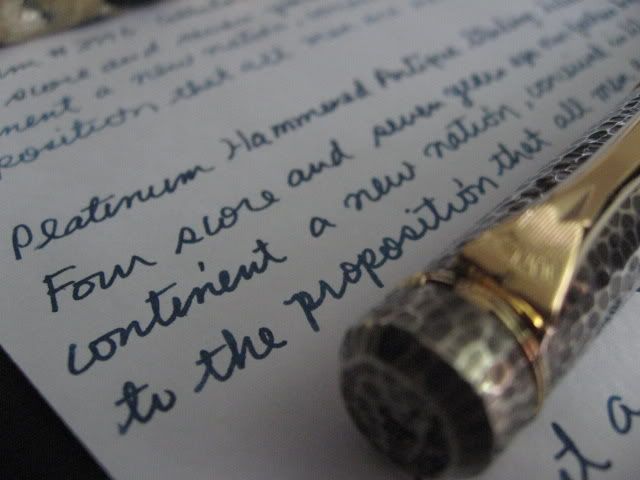 score and seven
nent a new nation,
position that all men are
Platinum Hammered Antique Sterling
Four score and seven years ago our fathers
continent a new nation, conceived
to the proposition that all men
it a